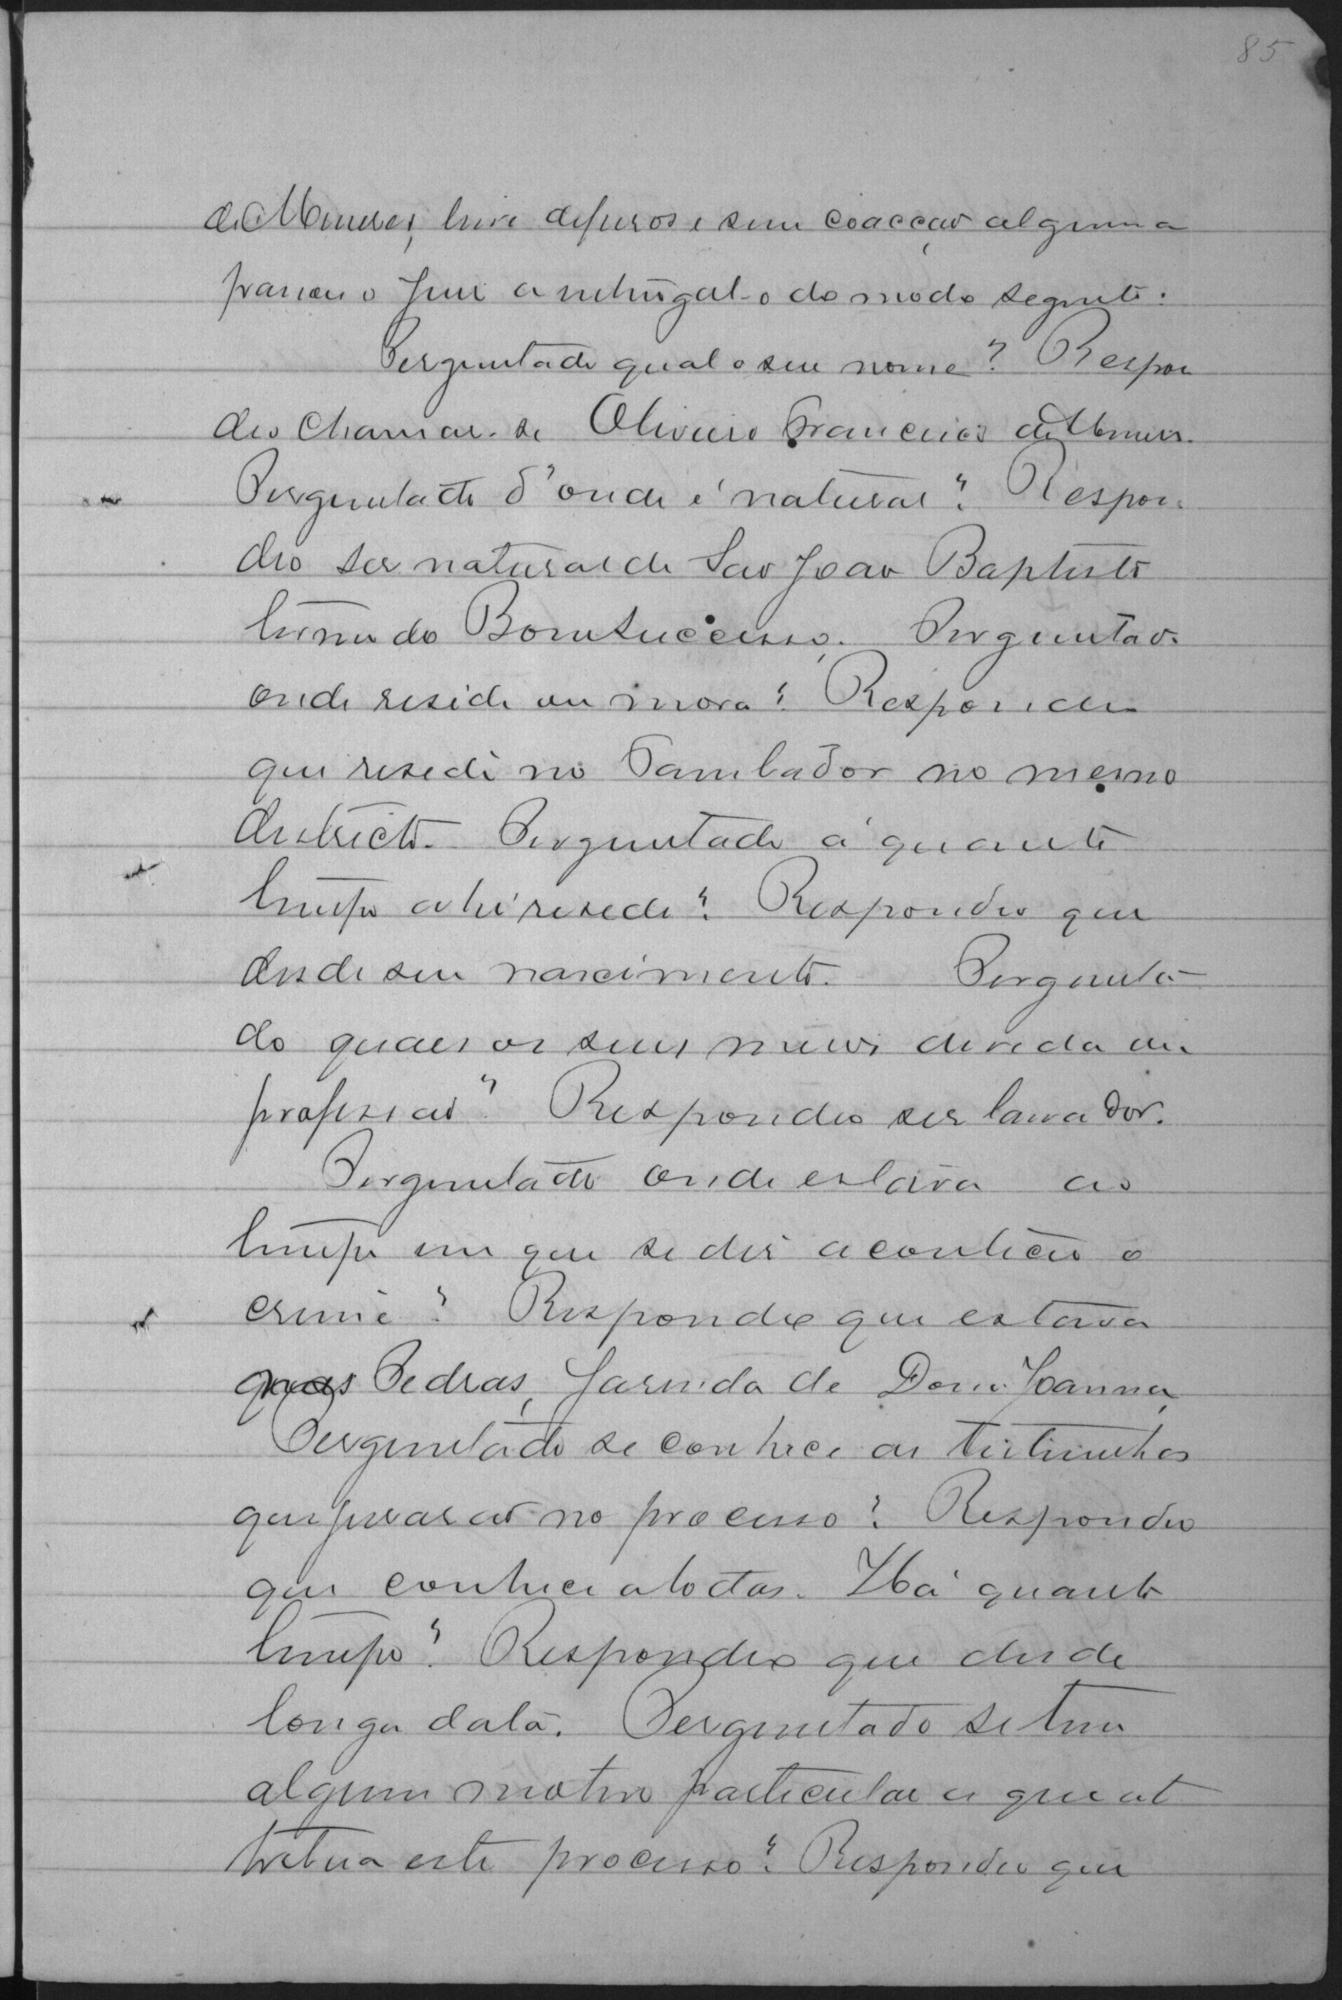 85
de Menezes, livre de ferros e sem coacção alguma
passou o Juiz a interrogal-o do modo seguinte:
Perguntado qual o seu nome? Respon
deo chamar-se Oliveiro Francisco de Menezes.
Perguntado d'onde é natural? Respon-
deo ser natural de São João Baptista
termo do Bomsuccesso. Perguntado
onde reside ou mora? Respondeu
que resede no Tambador no mesmo
districto. Perguntado a quanto
tempo ahi resede? Respondeo que
desde seu nascimento. Pergunta
do quaes os seus meios de vida ou
profissão? Respondeo ser lavrador.
Perguntado onde estava ao
tempo em que se diz aconteceo o
crime? Respondeo que estava
nas Pedras, fazenda de Dona Joanna,
Perguntado se conhece as testimunhas
que jurarão no processo? Respondeo
que conhece a todas. Há quanto
tempo? Respondeo que desde
longa data. Perguntado se tem
algum motivo particular a que at
tribua este processo? Respondeo que